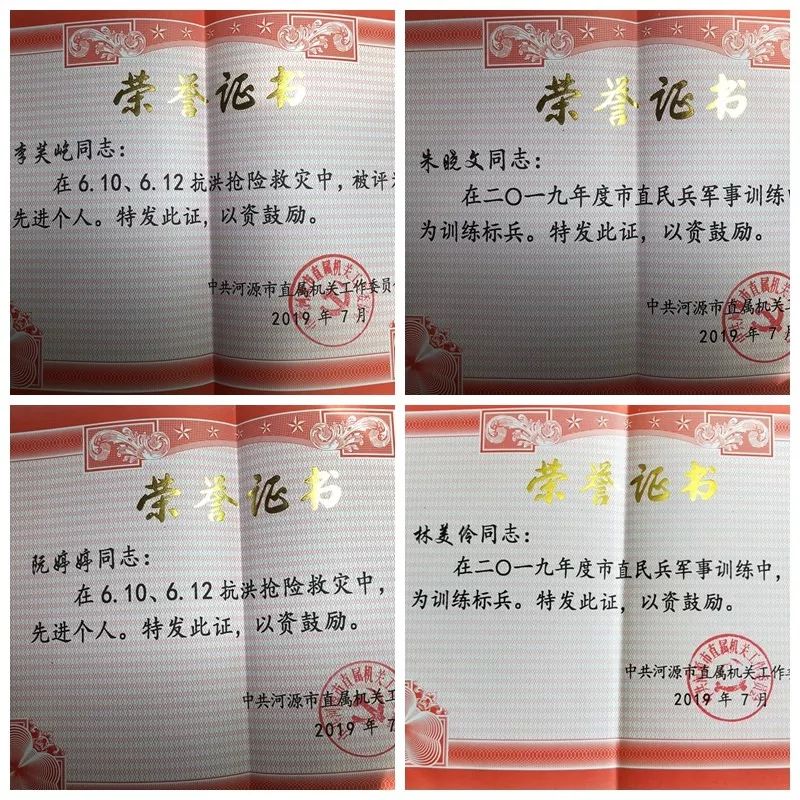 荣誉证书
李芙屹同志：
在6.10、6.12抗洪抢险救灾中，被评
先进个人。特发此证，以资鼓励。
中共河源市直属机关工作委员
2019年7月
荣誉证书
朱晓文同志：
在二〇一九年度市直民兵军事训练
为训练标兵。特发此证，以资鼓励。
中共河源市直属机关
2019年7
荣誉证书
阮婷婷同志：
在6.10、6.12抗洪抢险救灾中，
先进个人。特发此证，以资鼓励。
中共河源市直属机关工
2019年
荣誉证书
林美伶同志：
在二〇一九年度市直民兵军事训练中，
为训练标兵。特发此证，以资鼓励。
中共河源市直属机关工作
2019年7月